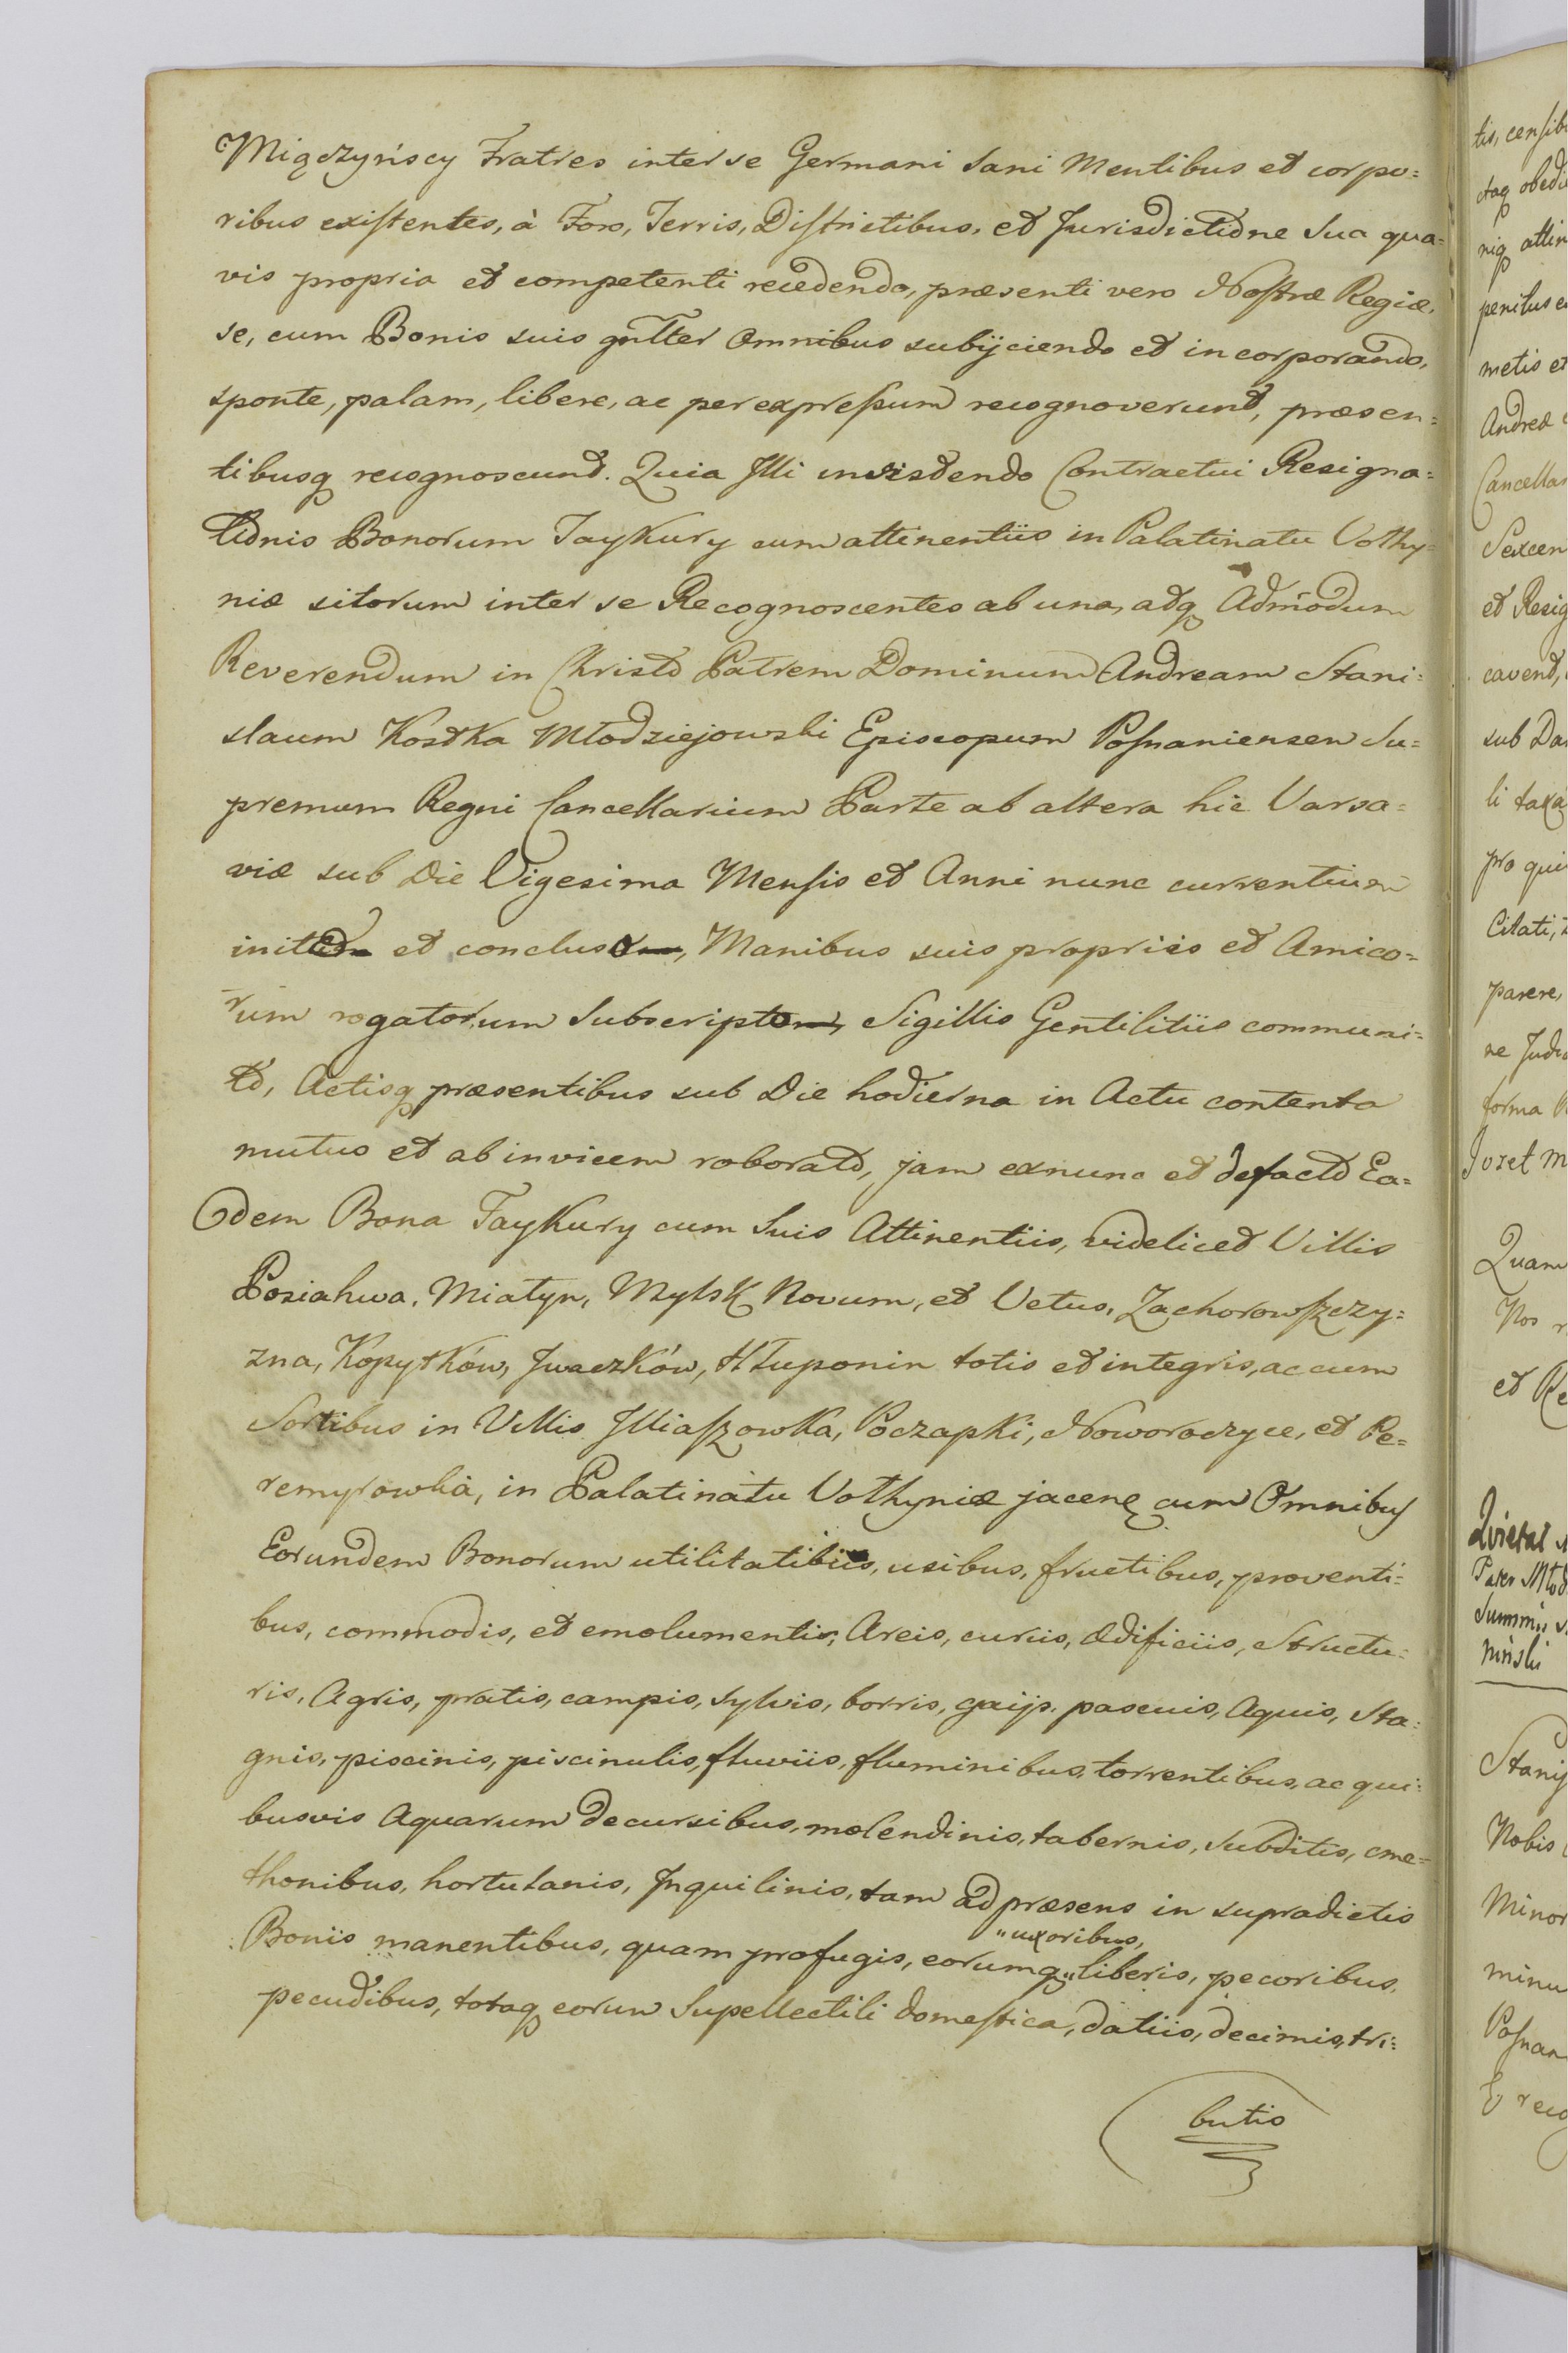 Miączyńscy Fratres inter se Germani Sani Mentibus et corpo=
ribus existentes, à Foro, Terris, Districtibus, et Jurisdictione Sua qua=
vis propria et competenti recedendo, præsenti vero Nostræ Regiæ,
se, cum Bonis suis gnltter Omnibus subijciendo et incorporando,
sponte, palam, libere, ac per expressum recognoverunt, præsen=
tibusq recognoscunt. Quia Illi insistendo Contractui Resigna=
tionis Bonorum Taykury cum attinentiis in Palatinatu Volhy=
niæ sitorum inter se Recognoscentes ab una, adq Admodum
Reverendum in Christo Patrem Dominum Andream Stani=
slaum Kostka Młodziejowski Episcopum Posnaniensem Su=
premum Regni Cancellarium Parte ab altera hic Varsa=
viæ sub Die Vigesima Mensis et Anni nunc currentium
inito et concluso, Manibus suis propriis et Amico=
rum rogatorum Subscripto, Sigillis Gentilitiis communi=
to, Actisq præsentibus sub Die hodierna in Actu contento
mutuo et ab invicem roborato, jam exnunc et defacto Ea=
dem Bona Taykury cum Suis Attinentiis, videlicet Villis
Posiahwa, Miatyn, Mylsk Novum, et Vetus, Zachorowszczy=
zna, Kopytków, Iwaczków, Hłuponin totis et integris, ac cum
Sortibus in Villis Illiaszowka, Poczapki, Noworoczyce, et Pe=
remyrowka, in Palatinatu Volhyniæ jacen cum Omnibus
Eorundem Bonorum utilitatibus, usibus, fructibus, proventi=
bus, commodis, et emolumentis, Areis, curiis, ædificiis, Structu=
ris, Agris, pratis, campis, sylvis, borris, gaijs, pascuis, Aquis, Sta=
gnis, piscinis, piscinulis, fluviis, fluminibus, torrentibus, ac qui=
busvis Aquarum decursibus, molendinis, tabernis, Subditis, cme=
thonibus, hortulanis, Inquilinis, tam ad præsens in supradictis
"uxoribus,
Boniis manentibus, quam profugis, eorumq" liberis, pecoribus,
pecudibus, totaq eorum Supellectili domestica, datiis, decimis, tri=
butis
tis, censib
ctaq obedi
niq attin
penitus e
metis et
Andreæ
Cancellar
Sexcen
et Resig
cavent,
sub Da
li taxa
pro qui
Citati,
parere,
ne Judi
forma
Juret m
Quam
Nos
et Re
Quietat
Pater Młod
Summii
niński
Stanis
Nobis
Minor
minu
Posnan
E reco